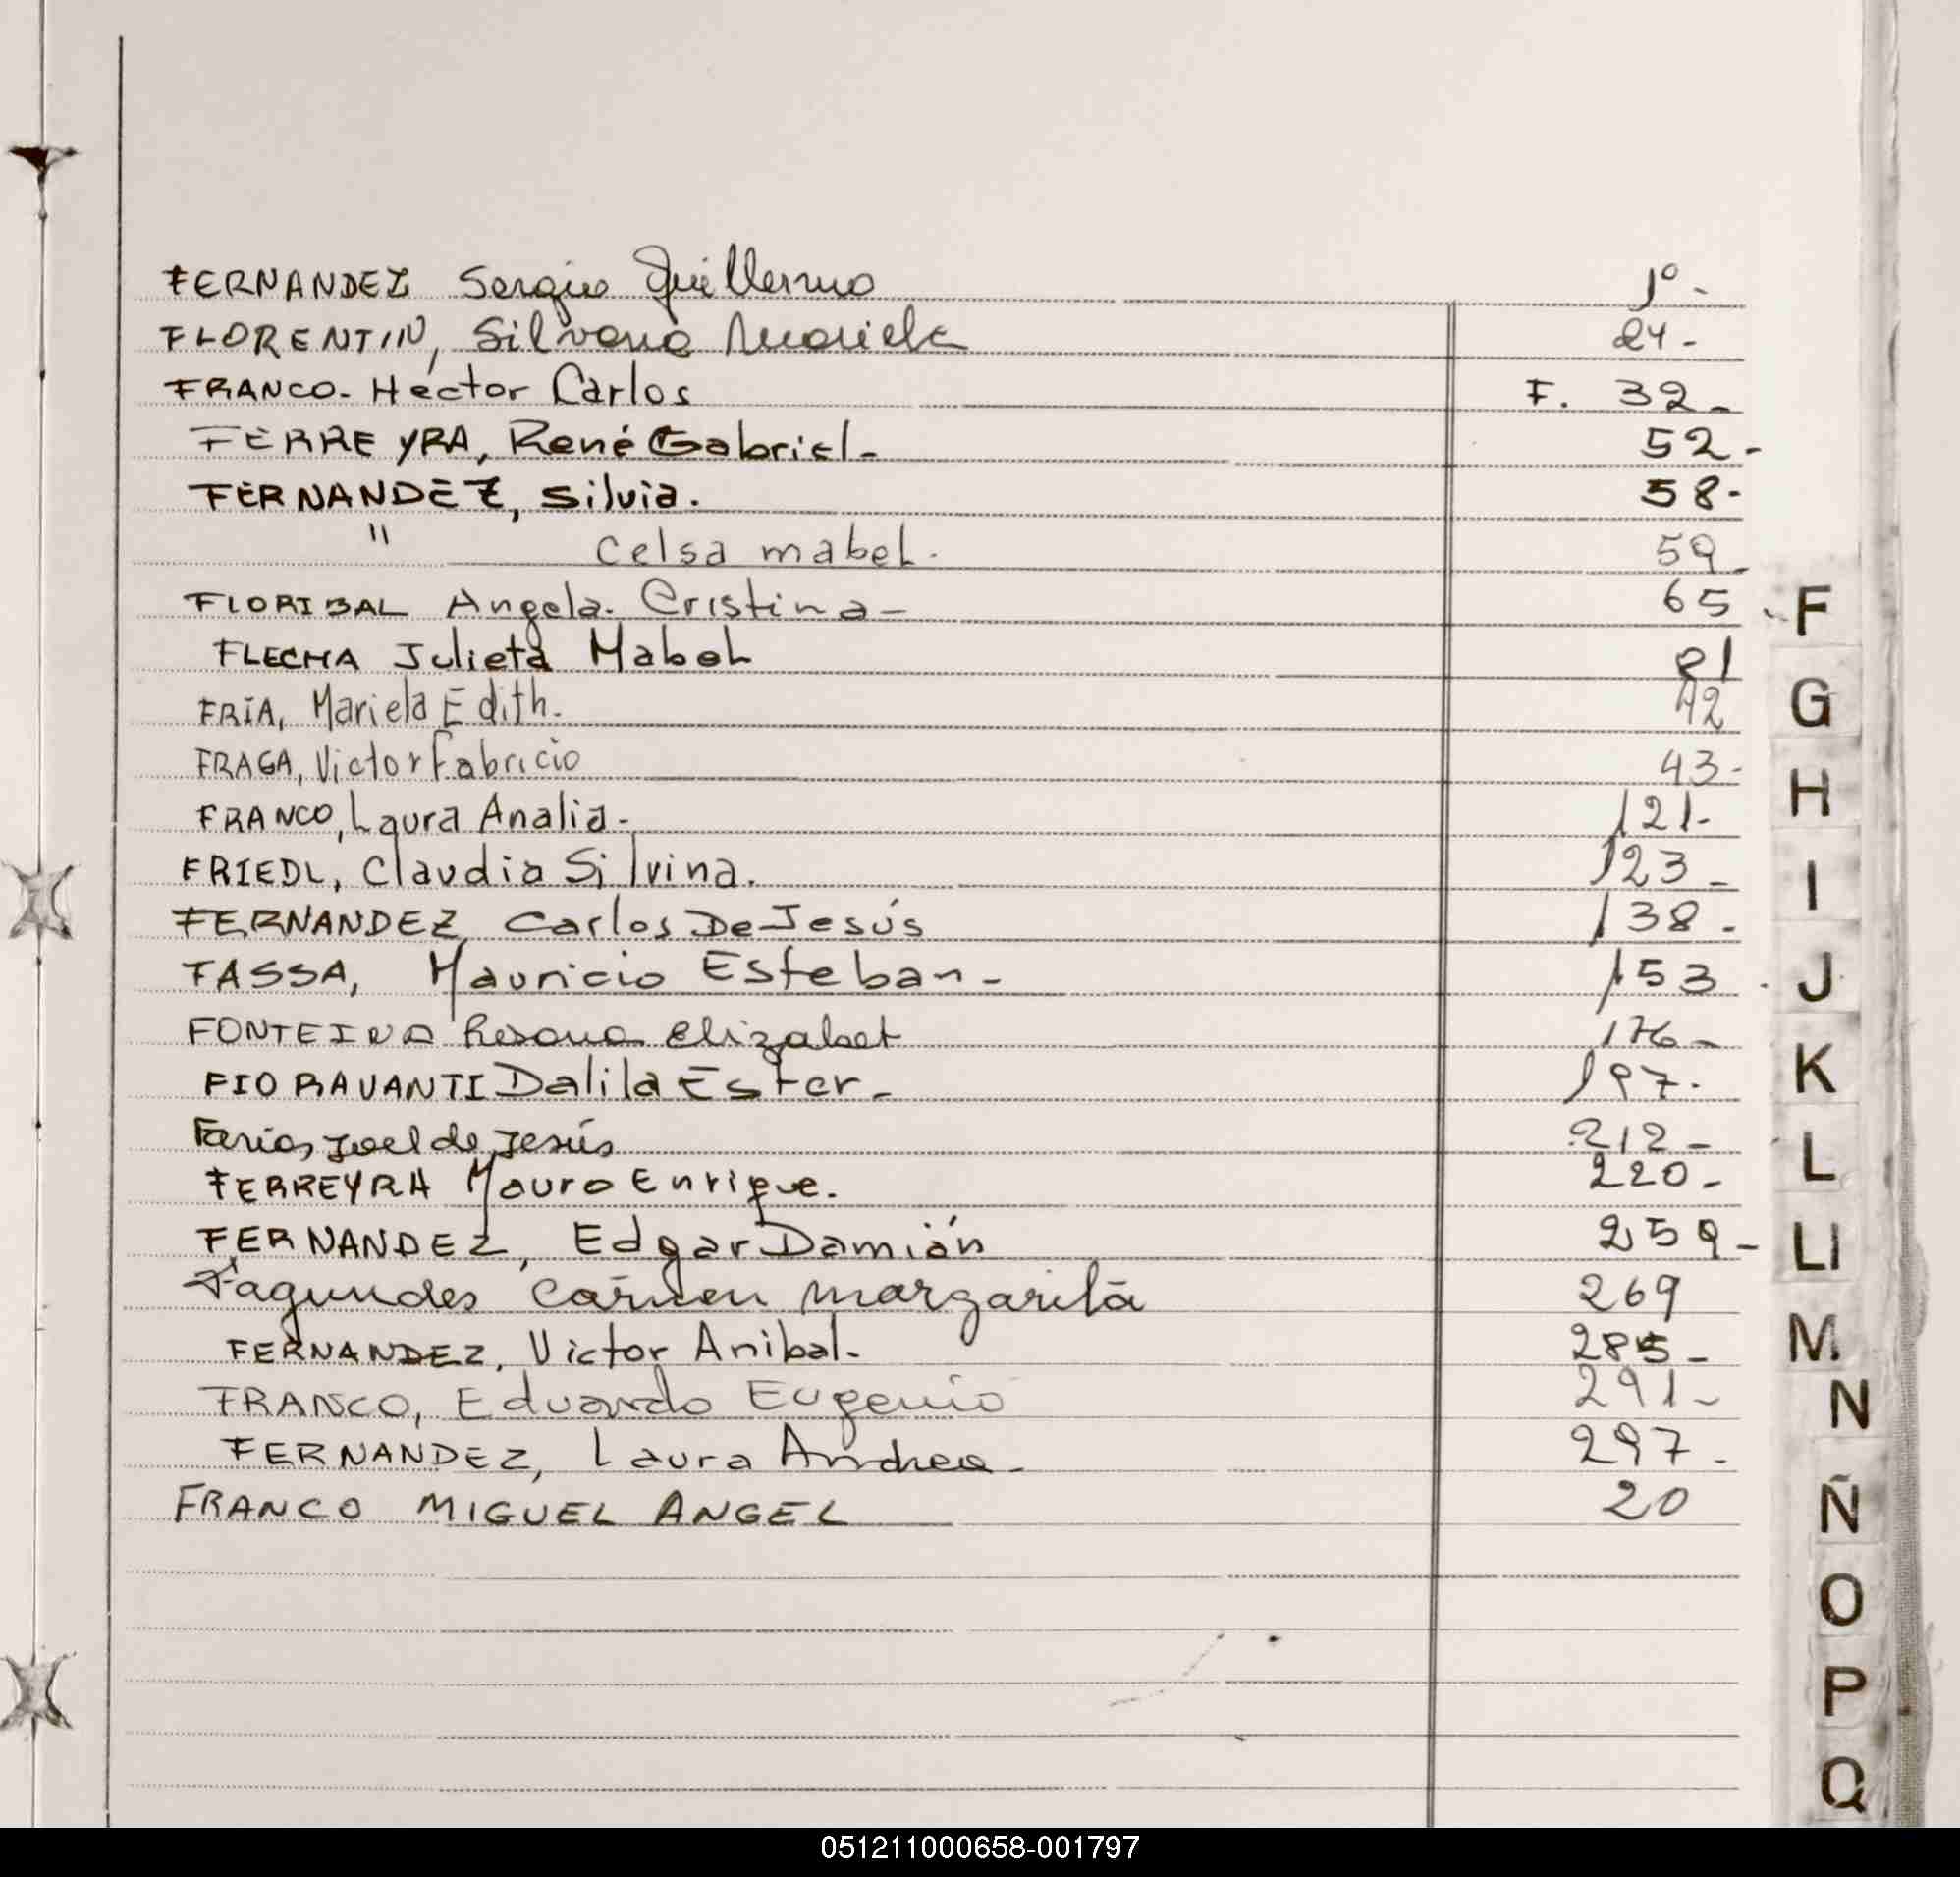 FERNANDEZ Sergio Guillermo 1º-
FLORENTIN, Silvana Mariela 24-
FRANCO- Héctor Carlos F. 32-
FERREYRA, René Gabriel- 52-
FERNANDEZ, Silvia. 58-
" Celsa mabel. 59-
FLORIBAL Angela Cristina- 65
FLECHA Julieta Mabel 81
FRÍA, Mariela Edith. 42
FRAGA, Victor Fabricio 43-
FRANCO, Laura Analia- 121-
FRIEDL, Claudia Silvina. 123-
FERNANDEZ Carlos De Jesús 138-
FASSA, Mauricio Esteban- 153
FONTEINA Rosana Elizabet 176-
FIORAVANTI Dalila Ester- 197-
Farias Joel de Jesús 212-
FERREYRA Mauro Enrique. 220-
FERNANDEZ, Edgar Damián 259-
Fagundes Carmen Margarita 269
FERNANDEZ, Victor Anibal- 285-
FRANCO, Eduardo Eugenio 291-
FERNANDEZ, Laura Andrea- 297-
FRANCO MIGUEL ANGEL 20
F
G
H
I
J
K
L
Ll
M
N
Ñ
O
P
Q
051211000658-001797